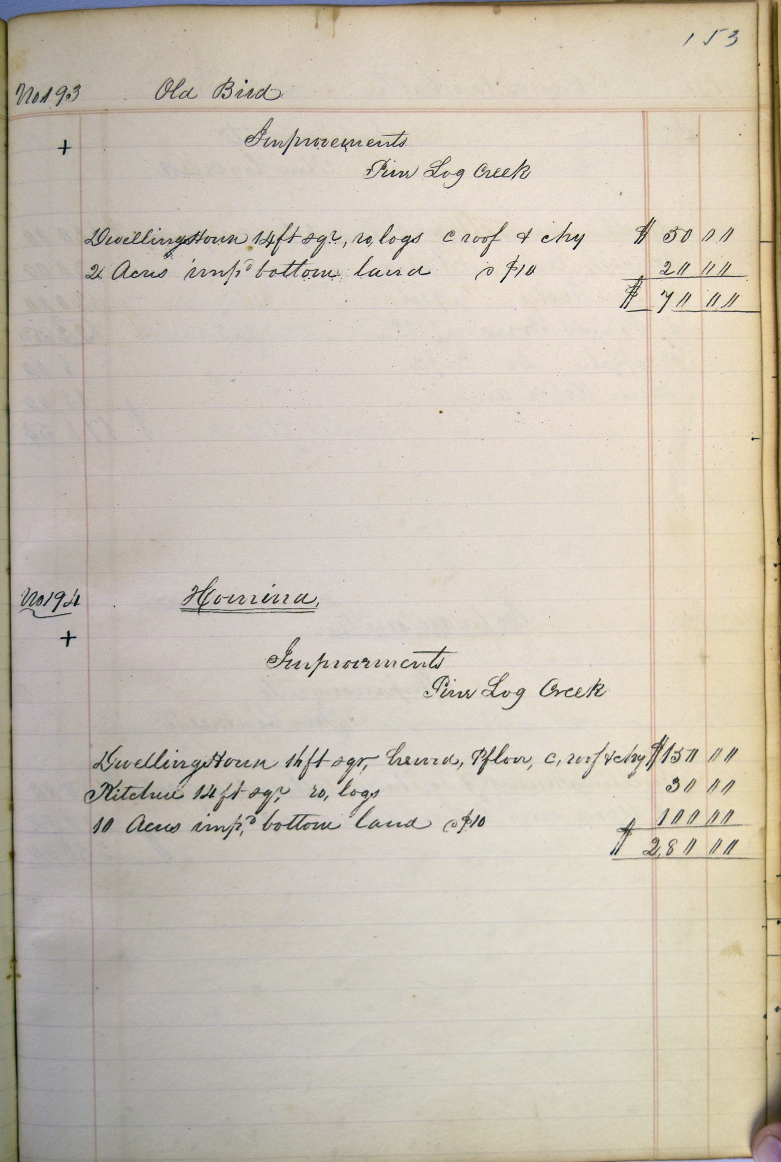 153
No 193 Old Bird
+
Improvements
Pine Log Creek
Dwelling House 14 ft sqr, ro, logs c roof & chy $ 50 00
2 Acres imp'd bottom land @ $10 20 00
$ 70 00
No 194 Homina,
+
Improvements
Pine Log Creek
Dwelling House 14 ft sqr, hewd, Pfloor, c, roof & chy $ 150 00
Kitchen 14 ft sqr ro, logs 30 00
10 Acres imp'd bottom land @ $10 100 00
$ 280 00